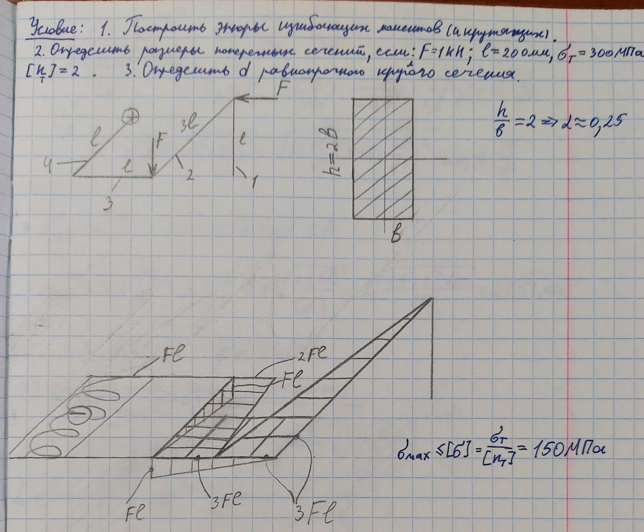 Условие: 1. Построить эпюры изгибающих моментов (и крутящих).
2. Определить размеры поперечных сечений, если: F=1кН; l=200мм, σт=300МПа
[nт]=2. 3. Определить d равнопрочного круглого сечения.
F
3l
l
F
l
l
4
3
2
1
h=2в
в
h/в=2 ⇒ α≈0,25
Fl
2Fl
Fl
σmax ≤[σ]=σт/[nт]=150МПа
Fl
3Fl
3Fl